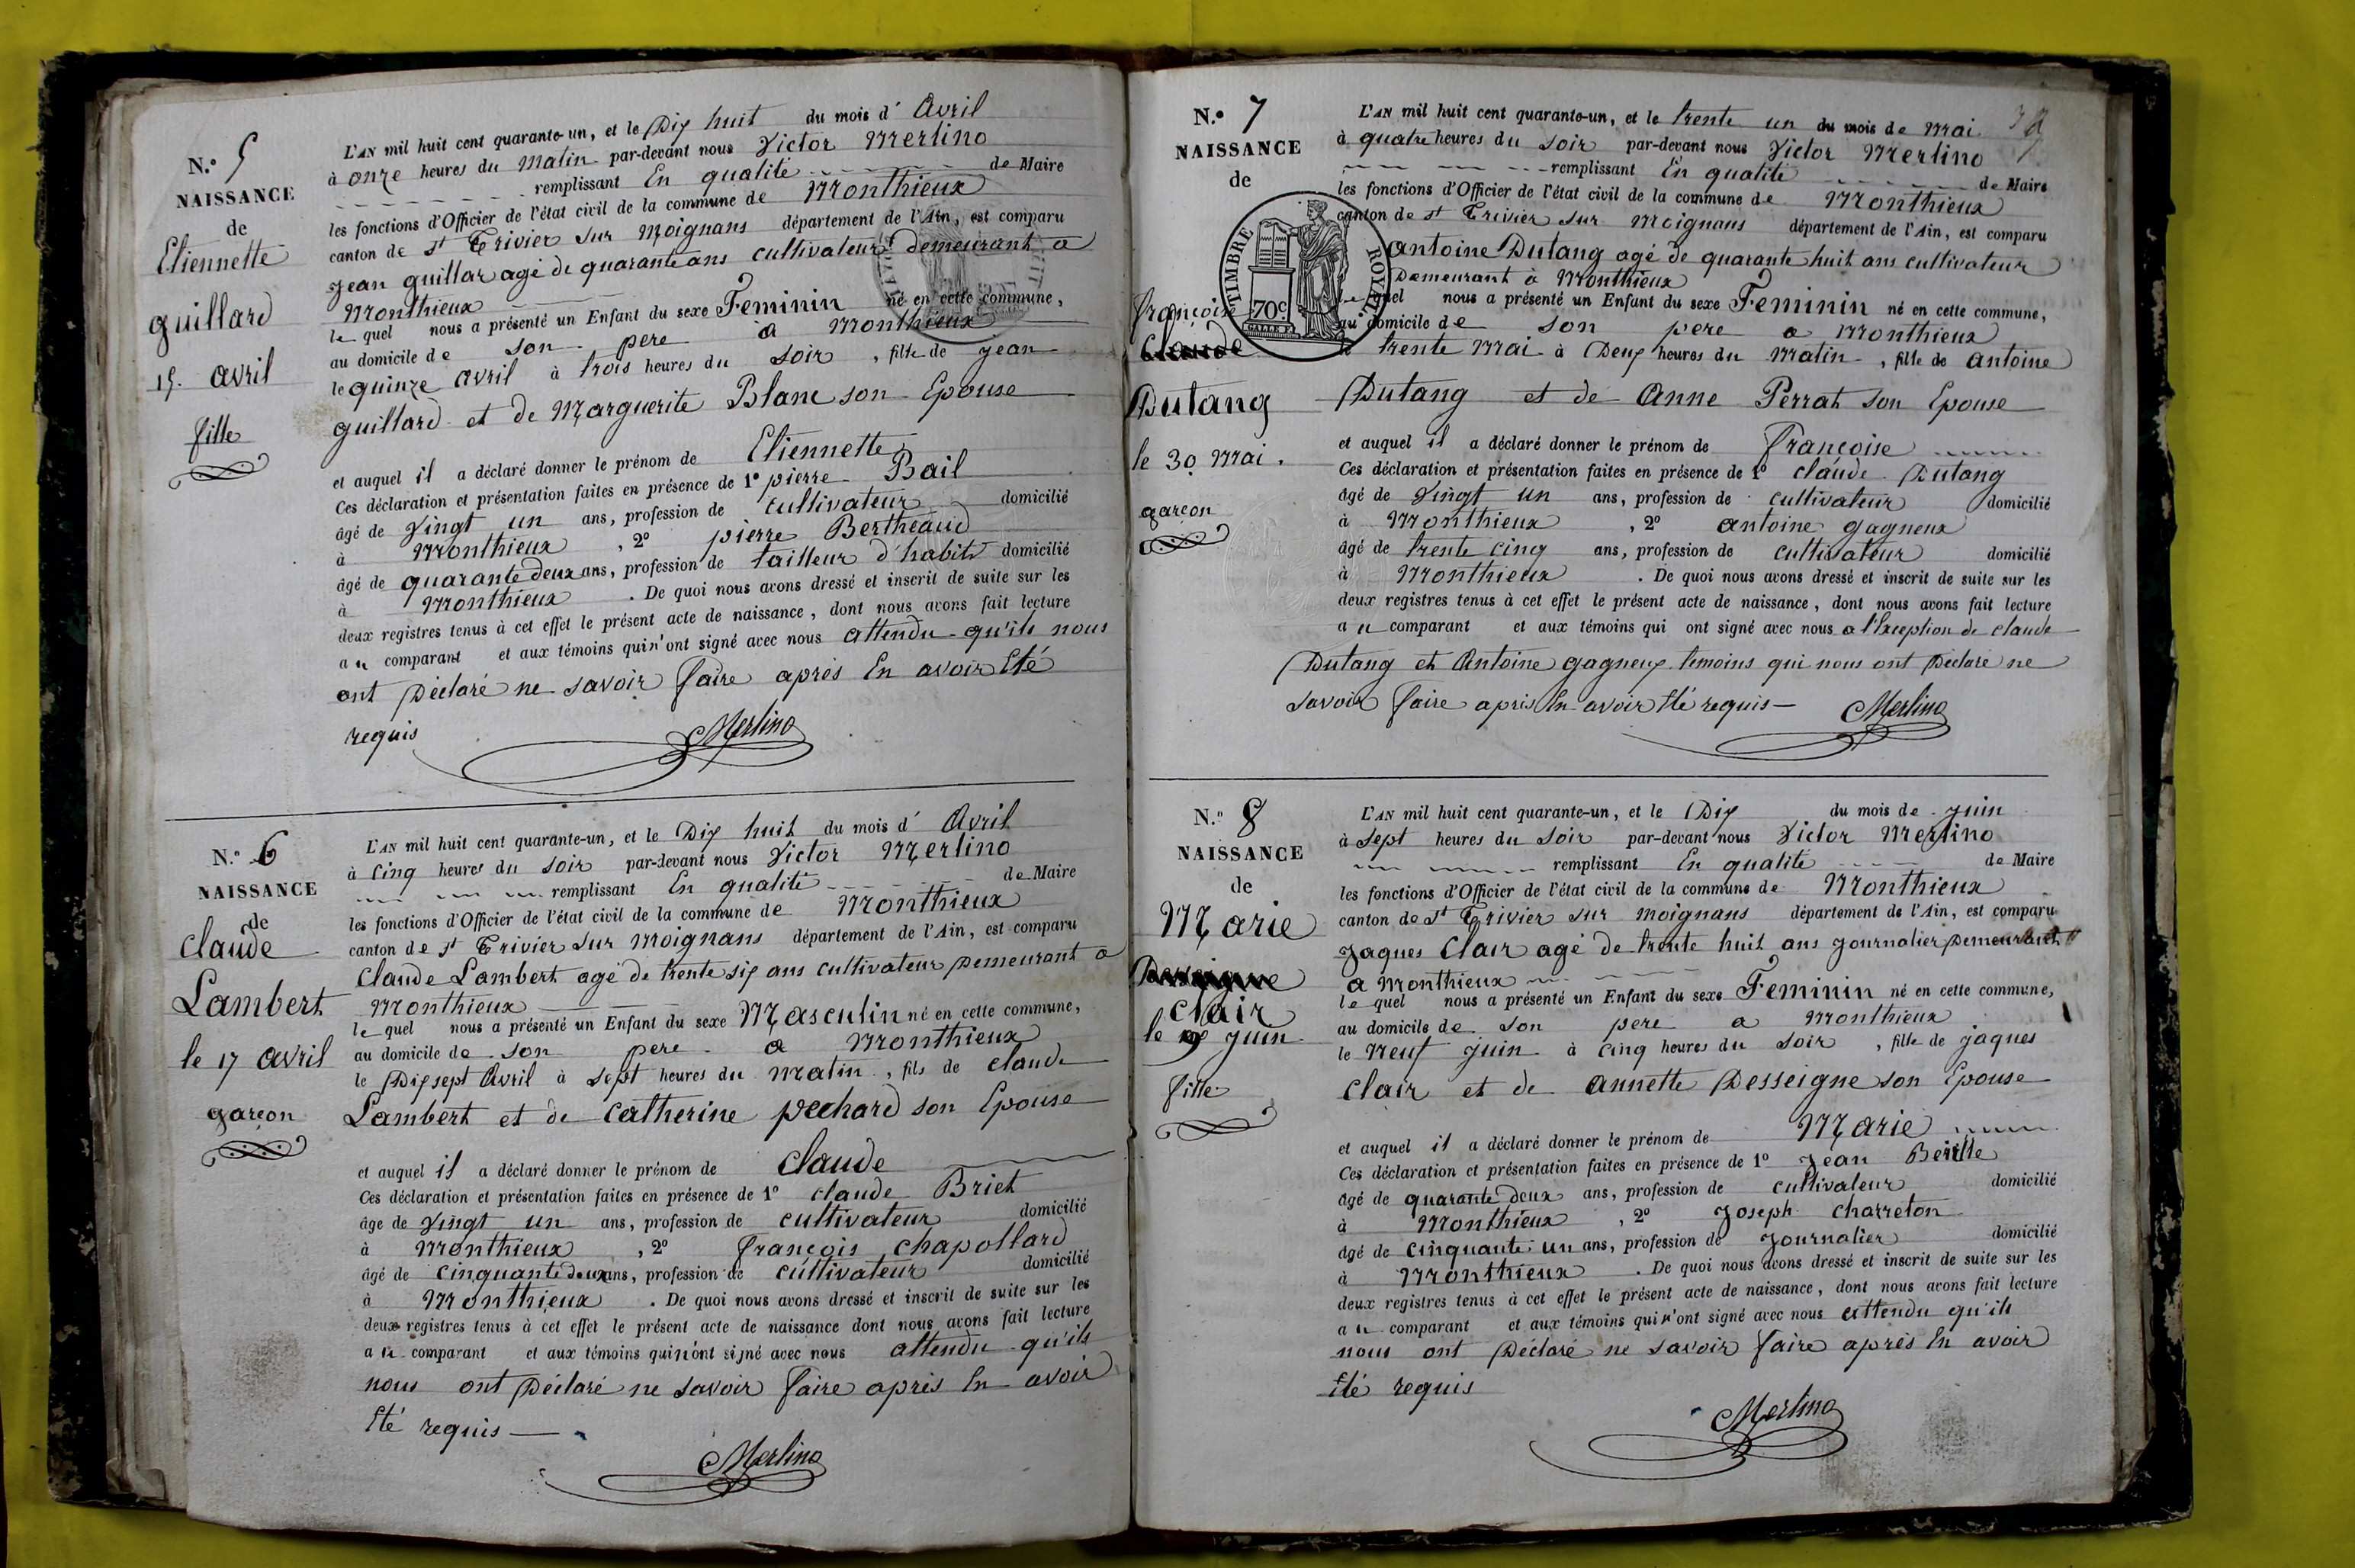 N.º 5
NAISSANCE
de
Etiennette
guillard
15. avril
fille
L'AN mil huit cent quarante-un, et le Dix huit du mois d' Avril
à onze heures du Matin par-devant nous Victor Merlino
remplissant En qualité de Maire
les fonctions d'Officier de l'état civil de la commune de Monthieux
canton de st Trivier sur Moignans département de l'Ain, est comparu
Jean guillar agé de quarante ans cultivateur demeurant a
Monthieux
le quel nous a présenté un Enfant du sexe Feminin né en cette commune,
au domicile de son pere a Monthieux
le quinze avril à trois heures du soir, fille de Jean
guillard et de Marguerite Blanc son Epouse
et auquel il a déclaré donner le prénom de Etiennette
Ces déclaration et présentation faites en présence de 1º pierre Bail
âgé de Vingt un ans, profession de cultivateur domicilié
à Monthieux, 2º pierre Bertheaud
âgé de quarante deux ans, profession de tailleur d'habits domicilié
à Monthieux. De quoi nous avons dressé et inscrit de suite sur les
deux registres tenus à cet effet le présent acte de naissance, dont nous avons fait lecture
a u comparant et aux témoins qui n'ont signé avec nous attendu qu'ils nous
ont Déclaré ne savoir faire aprés En avoir Eté
requis
Merlino
N.º 6
NAISSANCE
de
claude
Lambert
le 17 avril
garçon
L'AN mil huit cent quarante-un, et le Dix huit du mois d' Avril
à cinq heures du soir par-devant nous Victor Merlino
remplissant En qualité de Maire
les fonctions d'Officier de l'état civil de la commune de Monthieux
canton de st Trivier sur Moignans département de l'Ain, est comparu
Claude Lambert agé de trente six ans cultivateur Demeurant a
Monthieux
le quel nous a présenté un Enfant du sexe Masculin né en cette commune,
au domicile de son pere a Monthieux
le Dix sept Avril à sept heures du matin, fils de claude
Lambert et de catherine pechard son Epouse
et auquel il a déclaré donner le prénom de claude
Ces déclaration et présentation faites en présence de 1º claude Briet
âge de Vingt un ans, profession de cultivateur domicilié
à Monthieux, 2º françois chapollard
âgé de cinquante deux ans, profession de cultivateur domicilié
à Monthieux. De quoi nous avons dressé et inscrit de suite sur les
deux registres tenus à cet effet le présent acte de naissance dont nous avons fait lecture
a u comparant et aux témoins qui n'ont signé avec nous attendu qu'ils
nous ont Déclaré ne savoir faire aprés En avoir
Eté requis
Merlino
N.º 7
NAISSANCE
de
françoise
Claude
Dutang
le 30 Mai.
garçon
TIMBRE ROYAL
70c
L'AN mil huit cent quarante-un, et le trente un du mois de Mai
à quatre heures du soir par-devant nous Victor Merlino
remplissant En qualité de Maire
les fonctions d'Officier de l'état civil de la commune de Monthieux
canton de st Trivier sur Moignans département de l'Ain, est comparu
antoine Dutang agé de quarante huit ans cultivateur
Demeurant à Monthieux
le quel nous a présenté un Enfant du sexe Feminin né en cette commune,
au domicile de son pere a Monthieux
le trente Mai à Deux heures du Matin, fille de antoine
Dutang et de Anne Perrat son Epouse
et auquel il a déclaré donner le prénom de françoise
Ces déclaration et présentation faites en présence de 1º claude Dutang
âgé de Vingt un ans, profession de cultivateur domicilié
à Monthieux, 2º antoine gagneux
âgé de trente cinq ans, profession de cultivateur domicilié
à Monthieux. De quoi nous avons dressé et inscrit de suite sur les
deux registres tenus à cet effet le présent acte de naissance, dont nous avons fait lecture
a u comparant et aux témoins qui ont signé avec nous a l'Exception de claude
Dutang et Antoine gagneux temoins qui nous ont Déclaré ne
savoir faire apris En avoir Eté requis
Merlino
N.º 8
NAISSANCE
de
Marie
Desseigne
Clair
le 9 juin
fille
L'AN mil huit cent quarante-un, et le Dix du mois de Juin
à sept heures du soir par-devant nous Victor Merlino
remplissant En qualité de Maire
les fonctions d'Officier de l'état civil de la commune de Monthieux
canton de st Trivier sur moignans département de l'Ain, est comparu
Jaques Clair agé de trente huit ans Journalier Demeurant
a Monthieux
le quel nous a présenté un Enfant du sexe Feminin né en cette commune,
au domicile de son pere a Monthieux
le Neuf juin à cinq heures du soir, fille de jaques
clair et de annette Desseigne son Epouse
et auquel il a déclaré donner le prénom de Marie
Ces déclaration et présentation faites en présence de 1º Jean
âgé de quarante deux ans, profession de cultivateur domicilié
à Monthieux, 2º Joseph charreton
âgé de cinquante un ans, profession de Journalier domicilié
à Monthieux. De quoi nous avons dressé et inscrit de suite sur les
deux registres tenus à cet effet le présent acte de naissance, dont nous avons fait lecture
a u comparant et aux témoins qui n'ont signé avec nous attendu qu'ils
nous ont Déclaré ne savoir faire aprés En avoir
Eté requis
Merlino